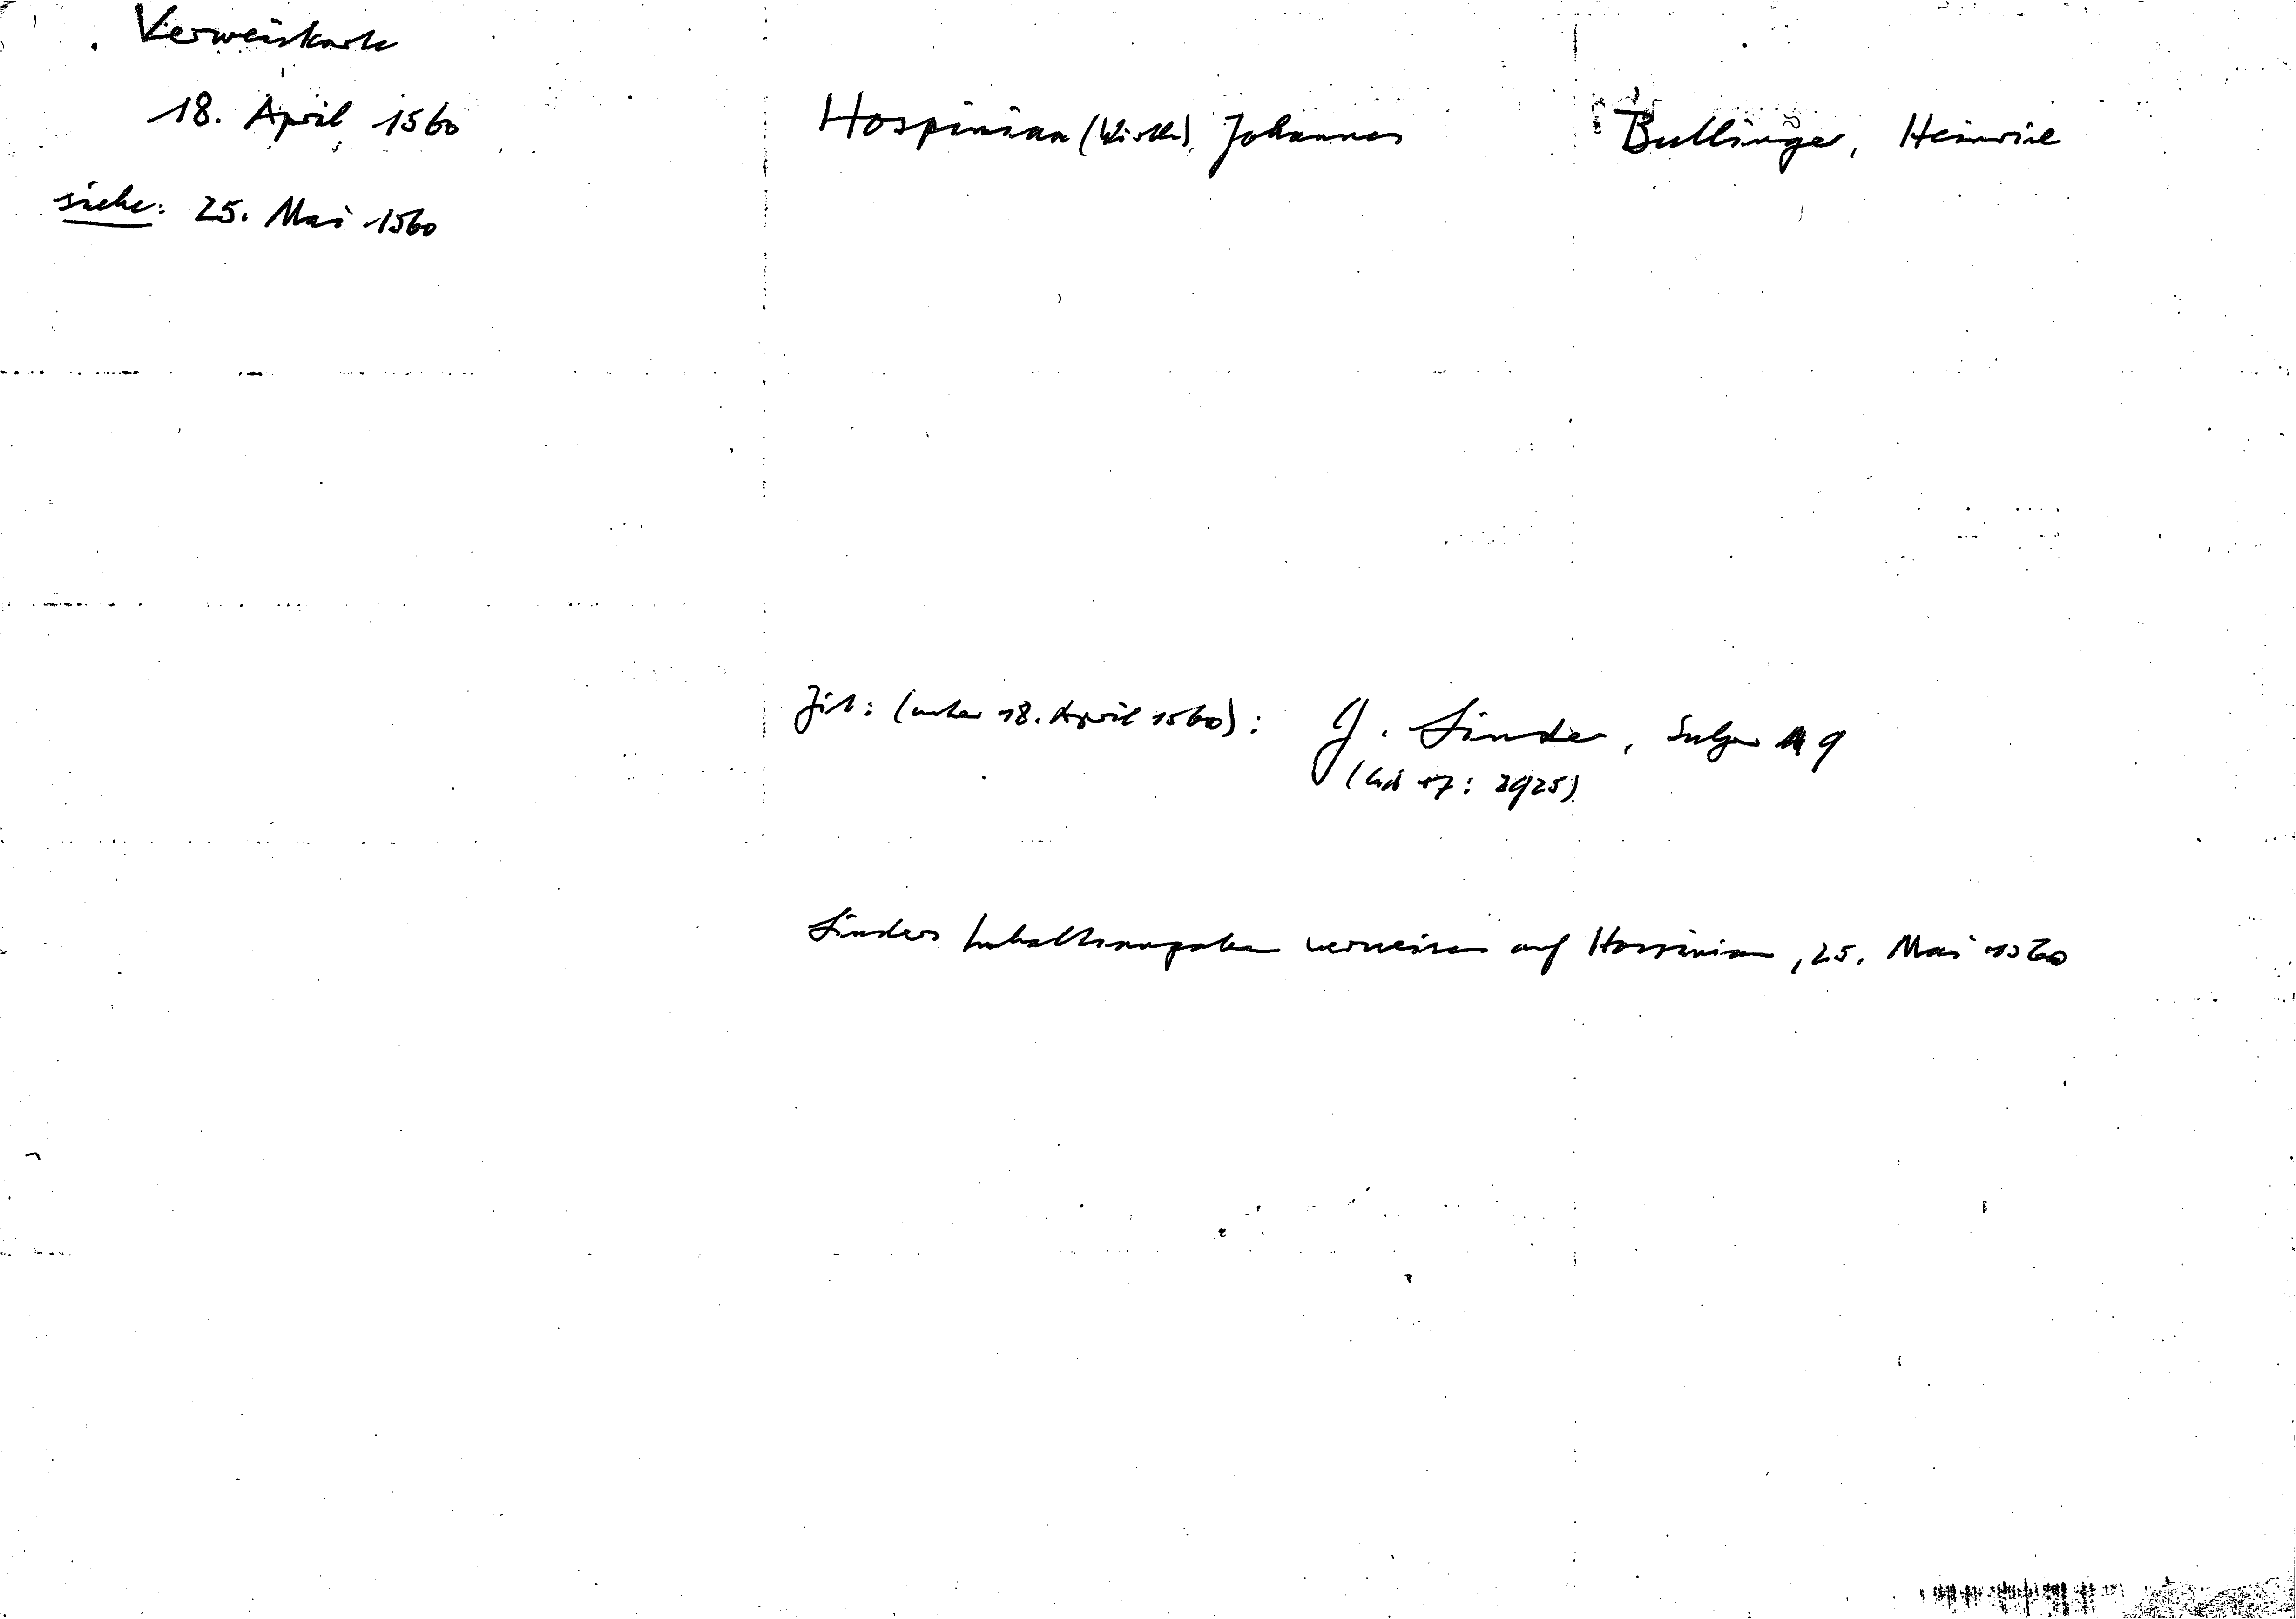 Verweiskarte
18. April 1560
siehe: 25. Mai 1560
Hospinian (Wirth), Johannes
Bullinger, Heinrich
Zit: (unter 18. April 1560): G. Linder, Sulzer 9
Linders Inhaltsangaben verweisen auf Hospinian, 25. Mai 1560